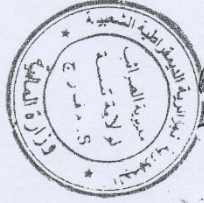 الجمهورية الجزائرية الديمقراطية الشعبية
وزارة المالية
مديرية الضرائب
لولاية تبسة